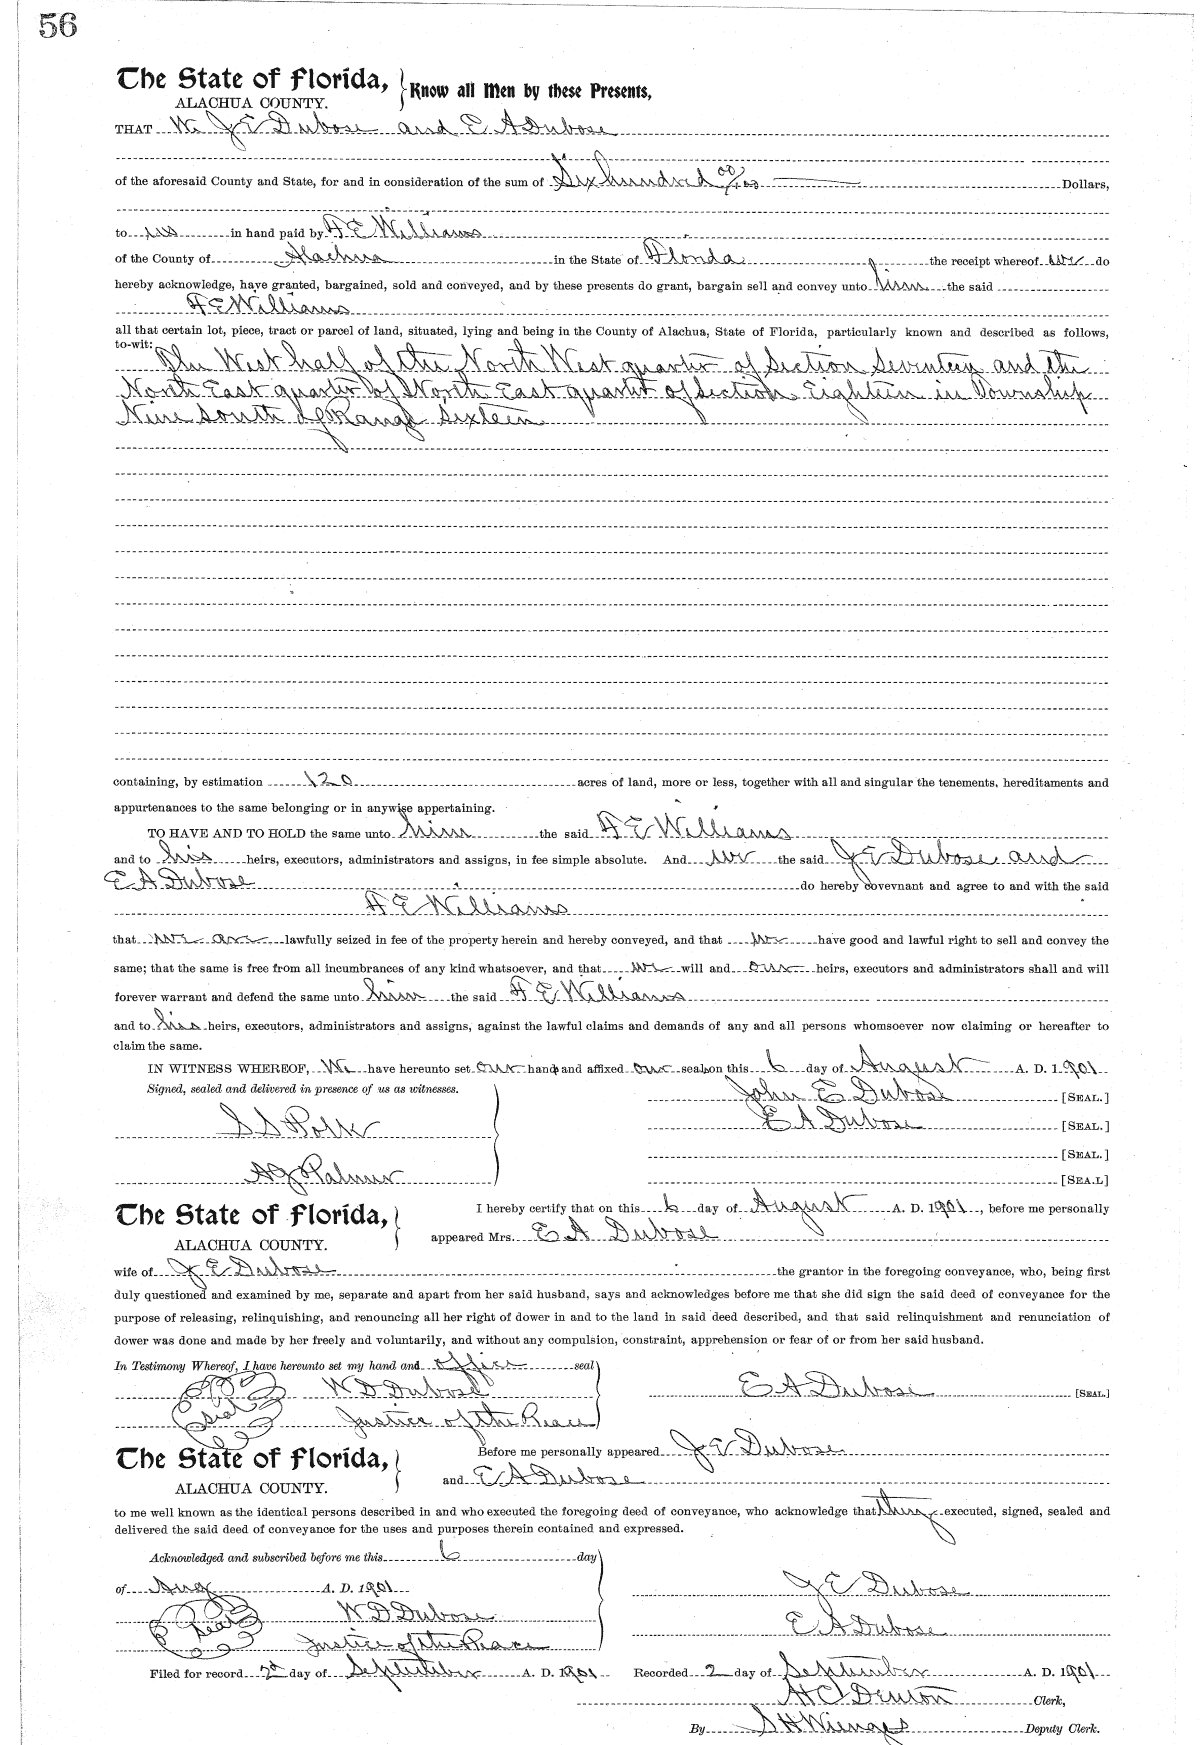 56
The State of Florida, Know all Men by these Presents,
ALACHUA COUNTY.
THAT We J E Dubose and E A Dubose
of the aforesaid County and State, for and in consideration of the sum of Six hundred 00/100 Dollars,
to us in hand paid by F E Williams
of the County of Alachua in the State of Florida the receipt whereof we do
hereby acknowledge, have granted, bargained, sold and conveyed, and by these presents do grant, bargain sell and convey unto him the said
F E Williams
all that certain lot, piece, tract or parcel of land, situated, lying and being in the County of Alachua, State of Florida, particularly known and described as follows,
to-wit:
The West half of the North West quarter of Section and the
North East quarter of North East quarter of Section Eighteen in Township
Nine South of Range Sixteen
containing, by estimation 120 acres of land, more or less, together with all and singular the tenements, hereditaments and
appurtenances to the same belonging or in anywise appertaining.
TO HAVE AND TO HOLD the same unto him the said F E Williams
and to his heirs, executors, administrators and assigns, in fee simple absolute. And we the said J E Dubose and
E A Dubose do hereby covevnant and agree to and with the said
F E Williams
that we are lawfully seized in fee of the property herein and hereby conveyed, and that we have good and lawful right to sell and convey the
same; that the same is free from all incumbrances of any kind whatsoever, and that we will and our heirs, executors and administrators shall and will
forever warrant and defend the same unto him the said F E Williams
and to his heirs, executors, administrators and assigns, against the lawful claims and demands of any and all persons whomsoever now claiming or hereafter to
claim the same.
IN WITNESS WHEREOF, We have hereunto set our hands and affixed our seals on this 6 day of August A. D. 1901
Signed, sealed and delivered in presence of us as witnesses. John E Dubose [SEAL.]
S S Polk E A Dubose [SEAL.]
[SEAL.]
A J Palmer [SEA.L]
The State of Florida, I hereby certify that on this 6 day of August A. D. 1901, before me personally
ALACHUA COUNTY. appeared Mrs. E A Dubose
wife of J E Dubose the grantor in the foregoing conveyance, who, being first
duly questioned and examined by me, separate and apart from her said husband, says and acknowledges before me that she did sign the said deed of conveyance for the
purpose of releasing, relinquishing, and renouncing all her right of dower in and to the land in said deed described, and that said relinquishment and renunciation of
dower was done and made by her freely and voluntarily, and without any compulsion, constraint, apprehension or fear of or from her said husband.
In Testimony Whereof, I have hereunto set my hand and office seal
W D Dubose E A Dubose [SEAL.]
Seal Justice of the Peace
The State of Florida, Before me personally appeared J E Dubose
ALACHUA COUNTY. and E A Dubose
to me well known as the identical persons described in and who executed the foregoing deed of conveyance, who acknowledge that they executed, signed, sealed and
delivered the said deed of conveyance for the uses and purposes therein contained and expressed.
Acknowledged and subscribed before me this 6 day
of Aug A. D. 1901 J E Dubose
Seal W D Dubose E A Dubose
Justice of the Peace
Filed for record 2d day of September A. D. 1901 Recorded 2 day of September A. D. 1901
H C Denton Clerk,
By S H Wienges Deputy Clerk.